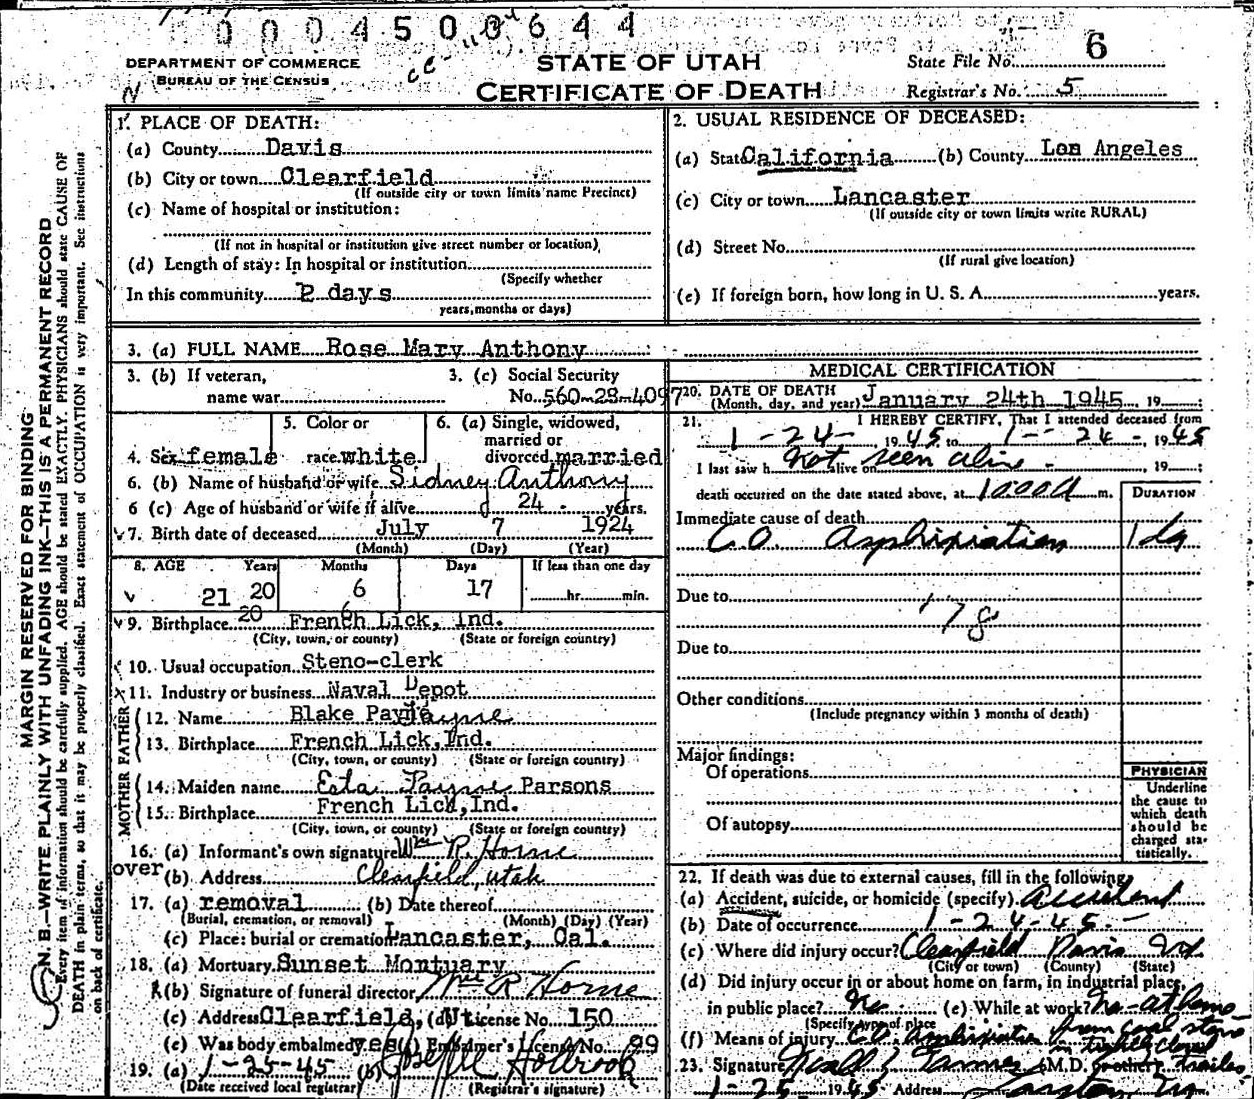 0 0 0 4 5 0 0 6 4 4
DEPARTMENT OF COMMERCE
BUREAU OF THE CENSUS
N
STATE OF UTAH
CERTIFICATE OF DEATH
State File No. 6
Registrar's No. 5
MARGIN RESERVED FOR BINDING
N. B.—WRITE PLAINLY WITH UNFADING INK—THIS IS A PERMANENT RECORD
Every item of information should be carefully supplied. AGE should be stated EXACTLY. PHYSICIANS should state CAUSE OF
DEATH in plain terms, so that it may be properly classified. Exact statement of OCCUPATION is very important. See instructions
on back of certificate.
1. PLACE OF DEATH:
(a) County Davis
(b) City or town Clearfield
(If outside city or town limits name Precinct)
(c) Name of hospital or institution:
(If not in hospital or institution give street number or location)
(d) Length of stay: In hospital or institution
(Specify whether
In this community 2 days
years, months or days)
2. USUAL RESIDENCE OF DECEASED:
(a) State California (b) County Los Angeles
(c) City or town Lancaster
(If outside city or town limits write RURAL)
(d) Street No.
(If rural give location)
(e) If foreign born, how long in U. S. A. years.
3. (a) FULL NAME Rose Mary Anthony
3. (b) If veteran, 3. (c) Social Security
name war No. 560-28-4097
5. Color or 6. (a) Single, widowed,
married or
4. Sex female race white divorced married
6. (b) Name of husband or wife Sidney Anthony
6 (c) Age of husband or wife if alive 24 years.
7. Birth date of deceased July 7 1924
(Month) (Day) (Year)
8. AGE Years Months Days If less than one day
21 20 6 17 hr. min.
20 6
9. Birthplace French Lick, Ind.
(City, town, or county) (State or foreign country)
10. Usual occupation Steno-clerk
11. Industry or business Naval Depot
FATHER
12. Name Blake Payne Payne
13. Birthplace French Lick, Ind.
(City, town, or county) (State or foreign country)
MOTHER
14. Maiden name Esta Payne Parsons
15. Birthplace French Lick, Ind.
(City, town, or county) (State or foreign country)
16. (a) Informant's own signature Wm R. Horne
over
(b) Address Clearfield, Utah
17. (a) removal (b) Date thereof
(Burial, cremation, or removal) (Month) (Day) (Year)
(c) Place: burial or cremation Lancaster, Cal.
18. (a) Mortuary Sunset Montuary
(b) Signature of funeral director Wm R Horne
(c) Address Clearfield, Ut (d) License No. 150
(e) Was body embalmed yes (f) Embalmer's License No. 99
19. (a) 1-25-45 (b) Holbrook
(Date received local registrar) (Registrar's signature)
MEDICAL CERTIFICATION
20. DATE OF DEATH
(Month, day, and year) January 24th 1945, 19
21. I HEREBY CERTIFY, That I attended deceased from
1-24-, 1945 to 1-24-, 1945
I last saw h Not seen alive alive on , 19
death occurred on the date stated above, at 10:00 A m.
DURATION
Immediate cause of death
C.O. Asphixiation 1 da
Due to
178
Due to
Other conditions
(Include pregnancy within 3 months of death)
Major findings:
Of operations
Of autopsy
PHYSICIAN
Underline
the cause to
which death
should be
charged sta-
tistically.
22. If death was due to external causes, fill in the following:
(a) Accident, suicide, or homicide (specify) Accident
(b) Date of occurrence 1-24-45-
(c) Where did injury occur? Clearfield Davis Ut.
(City or town) (County) (State)
(d) Did injury occur in or about home on farm, in industrial place,
in public place? No (e) While at work? No-at home
(Specify type of place
(f) Means of injury C.O. Asphixiation from coal stove
in tightly closed
trailer
23. Signature M.D. or other
1-25 1945 Address